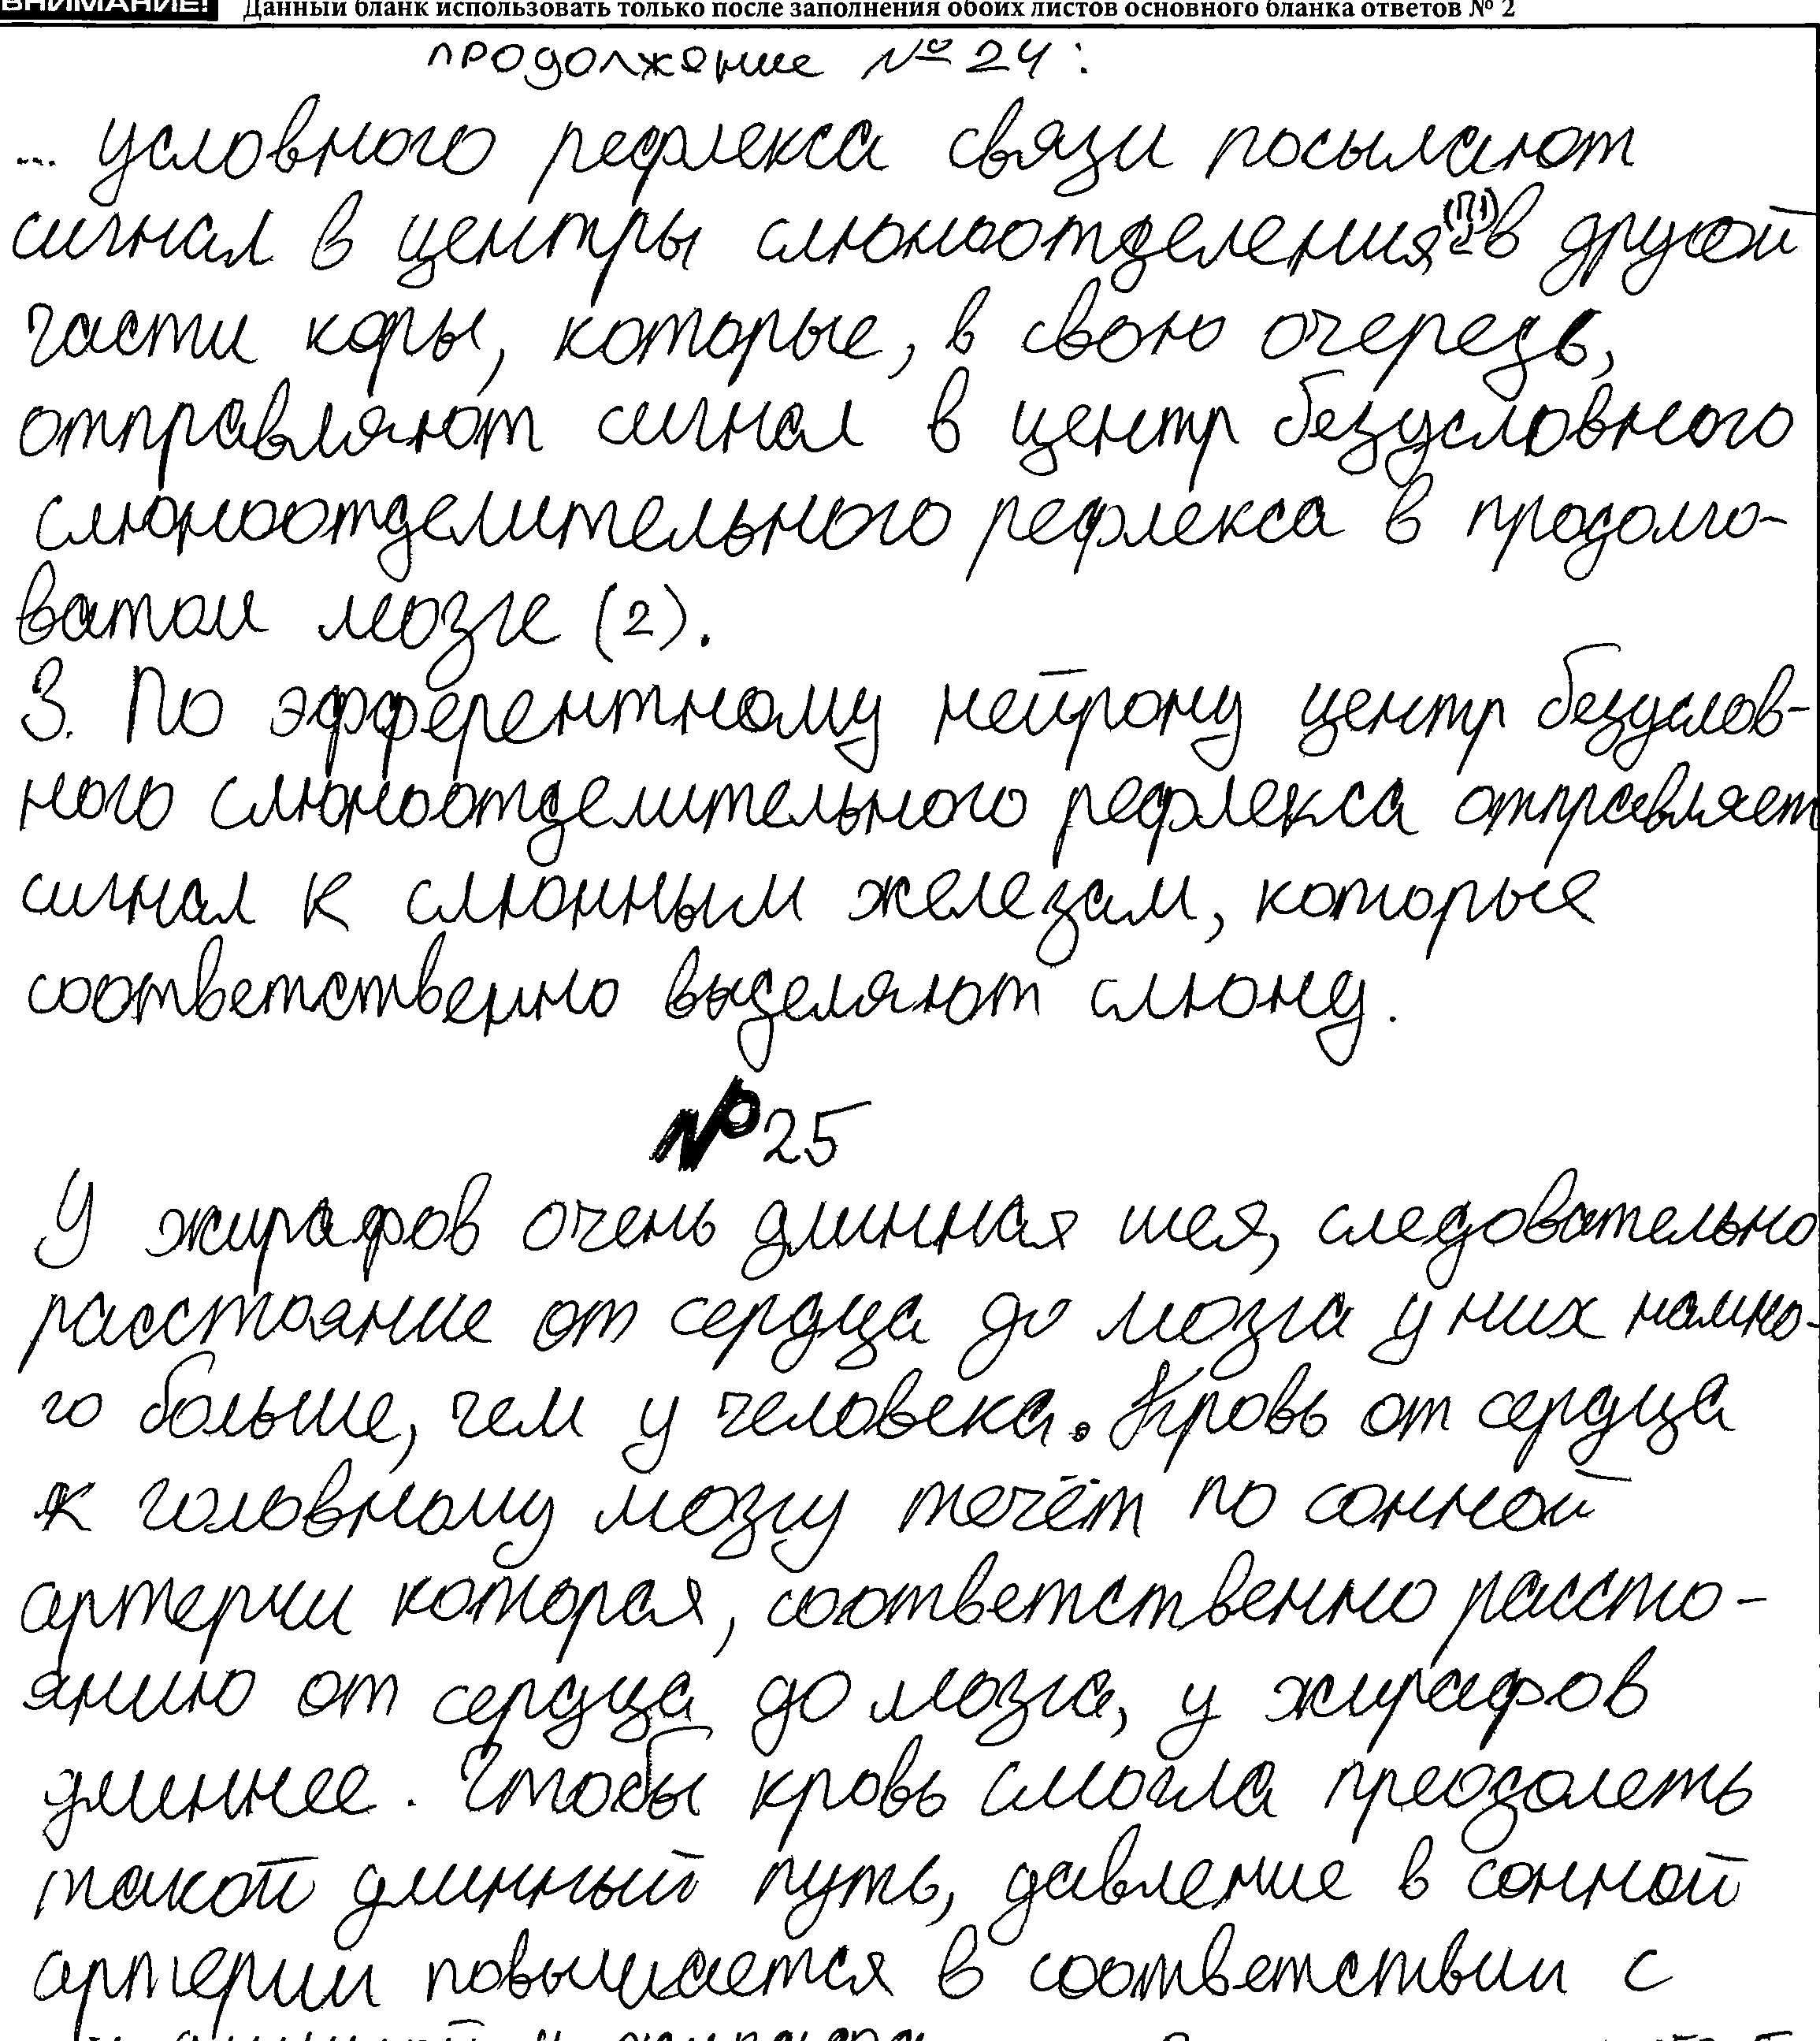 ВНИМАНИЕ! Данный бланк использовать только после заполнения обоих листов основного бланка ответов № 2
продолжение № 24:
... условного рефлекса связи посылают
сигнал в центры слюноотделения в другой
части коры, которые, в свою очередь,
отправляют сигнал в центр безусловного
слюноотделительного рефлекса в продолго-
ватом мозге (2).
3. По эфферентному нейрону центр безуслов-
ного слюноотделительного рефлекса отправляет
сигнал к слюнным железам, которые
соответственно выделяют слюну.
№ 25
У жирафов очень длинная шея, следовательно
расстояние от сердца до мозга у них намно-
го больше, чем у человека. Кровь от сердца
к головному мозгу течёт по сонной
артерии которая, соответственно рассто-
янию от сердца до мозга, у жирафов
длиннее. Чтобы кровь смогла преодолеть
такой длинный путь, давление в сонной
артерии повышается в соответствии с